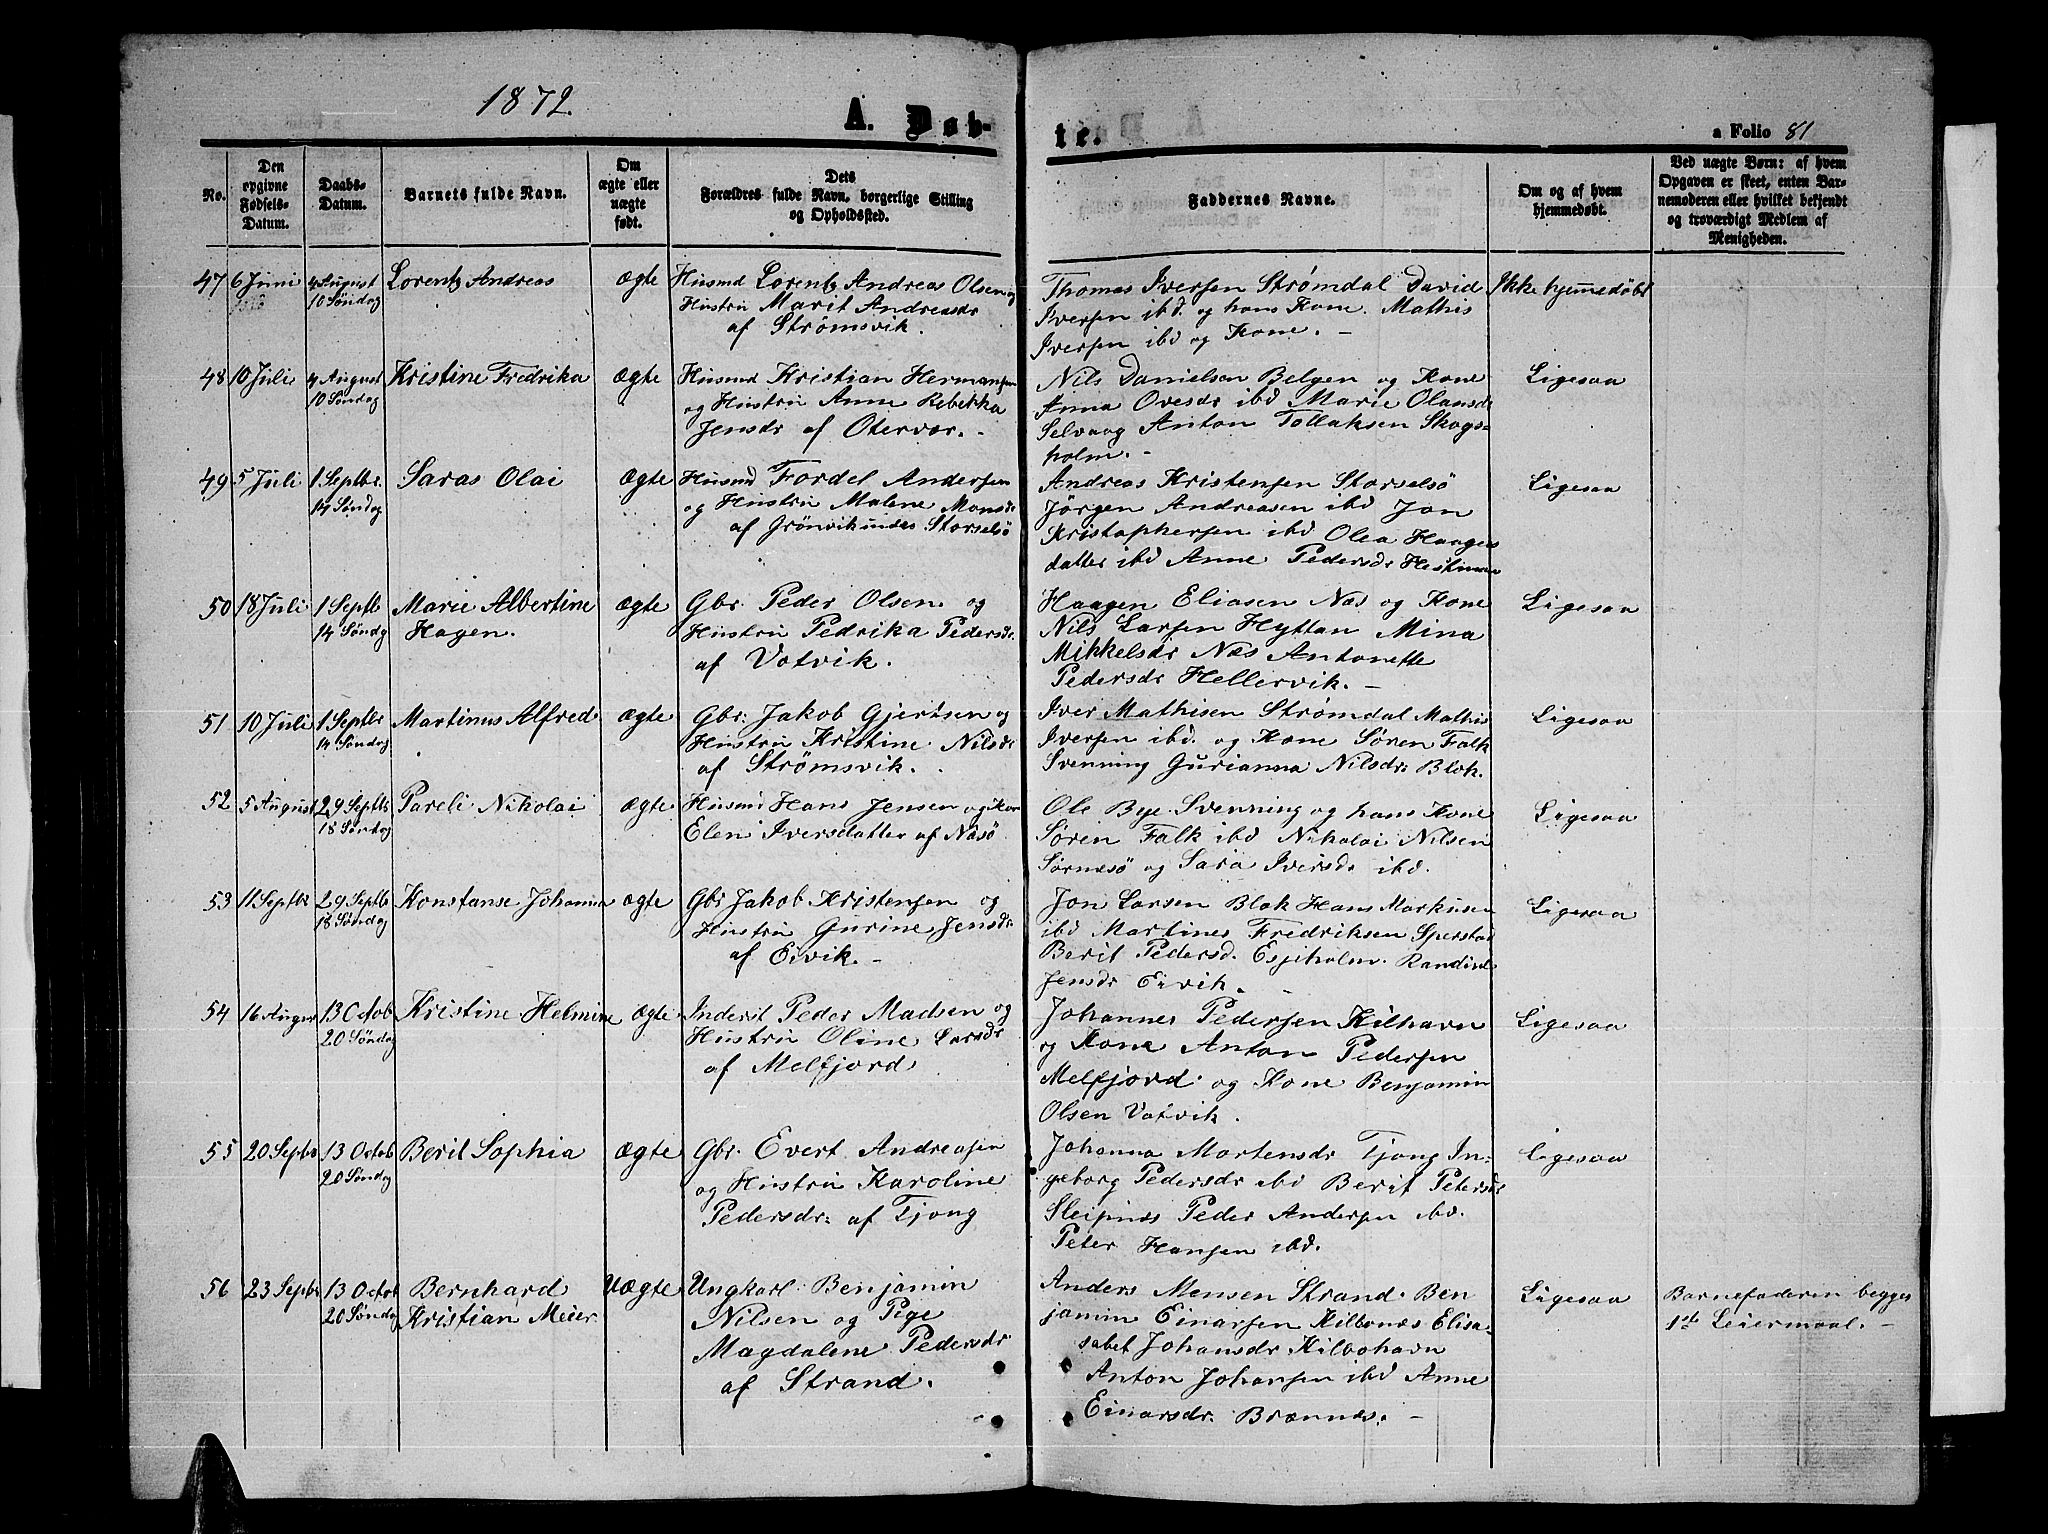 1872.
A. Døb-
te.
a Folio 81
No.
Den
opgivne
Fødsels-
Datum.
Daabs-
Datum.
Barnets fulde Navn.
Om
ægte eller
uægte
født.
Dets
Forældres fulde Navn, borgerlige Stilling
og Opholdssted.
Faddernes Navne.
Om og af hvem
hjemmedøbt.
Ved uægte Børn: af hvem
Opgaven er skeet, enten Bar-
nemoderen eller hvilket bekjendt
og troværdigt Medlem af
Menigheden.
47 6 Juni
4 August
10 Søndag
Lorentz Andreas
Ægte
Husmd Lorentz Andreas Olsen og
Hustru Marit Andreasdr
af Strømsvik.
Thomas Iversen Strømdal David
Iversen ibd. og hans Kone. Mathis
Iversen ibd og Kone. -
Ikke hjemmedøbt
48 10 Juli
4 August
10 Søndag
Kristine Fredrika
Ægte
Husmd Kristian Hermansen
og Hustru Anne Rebekka
Jensdr af Otervær. -
Nils Danielsen Belgen og Kone
Anna Ovesdr ibd Marie Olausdr
Selvaag Anton Tollaksen Skogs-
holm. -
Ligesaa
49 5 Juli
1 Septbr.
14 Søndag
Saras Olai
Ægte
Husmd Fordel Andersen
og Hustru Malene Monsdr
af Grönvik under Storselsö
Andreas Kristensen Storselsö
Jörgen Andreasen ibd Jon
Kristophersen ibd Olea Haagens
datter ibd Anne Pedersdr
Ligesaa
50 18 Juli
1 Septb
14 Søndg
Marie Albertine
Hagen.
Ægte
Gbr. Peder Olsen og
Hustru Pedrika Pedersdr.
af Votvik.
Haagen Eliasen Næs og Kone
Nils Larsen Hyttan Mina
Mikkelsdr Næs Antonette
Pedersdr Hellervik. -
Ligesaa
51 10 Juli
1 Septbr
14 Søndag
Martinus Alfred
Ægte
Gbr: Jakob Gjertsen og
Hustru Kristine Nilsdr
af Strømsvik.
Iver Mathisen Strømdal Mathis
Iversen ibd. og Kone Søren Falk
Svenning Gurianna Nilsdr. Blok.
Ligesaa
52 5 August
29 Septbr
18 Søndag
Pareli Nikolai
Ægte
Husmd Hans Jensen og Kone
Elen Iversdatter af Näsö
Ole Bye Svenning og hans Kone
Søren Falk ibd Nikolai Nilsen
Sørnæsö og Sara Iversdr ibd.
Ligesaa
53 11 Septbr
29 Septb
18 Søndag
Konstanse Johanna
Ægte
Gbr Jakob Kristensen og
Hustru Gurine Jensdr
af Eivik. -
Jon Larsen Blok Hans Markusen
ibd Martines Fredriksen Sperstad
Berit Pedersd. Esjeholm. Randine
Jensdr Eivik. -
Ligesaa
54 16 August
13 Octob
20 Søndag
Kristine Helmine
Ægte
Inderst Peder Madsen og
Hustru Oline Larsdr
af Melfjord
Johannes Pedersen Kilhavn
og Kone Anton Pedersen
Melfjord og Kone Benjamin
Olsen Votvik.
Ligesaa
55 20 Septbr
13 Octob
20 Søndag
Berit Sophia
Ægte
Gbr. Evert Andreasen
og Hustru Karoline
Pedersdr: af Tjong
Johanna Mortensdr Tjong In-
geborg Pedersdr ibd Berit Petersdr
Sleipnes Peder Andersen ibd.
Peter Hansen ibd.
Ligesaa
56 23 Septbr
13 Octob
20 Søndag
Bernhard
Kristian Meier
Uægte
Ungkarl Benjamin
Nilsen og Pige
Magdalene Pedersdr
af Strand.
Anders Monsen Strand. Ben
jamin Einarsen Kilbonæs Elisa-
sabet Johansdr Kilbohavn
Anton Johansen ibd Anne
Einarsdr. Brænnæs. -
Ligesaa
Barnefaderen begges
1ste Leiermaal. -